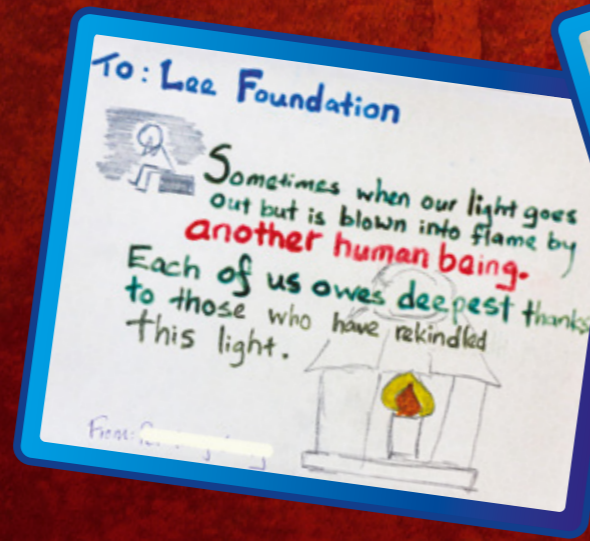 To: Lee Foundation
Sometimes when our light goes
out but is blown into flame by
another human being.
Each of us owes deepest thanks
to those who have rekindled
this light.
From: